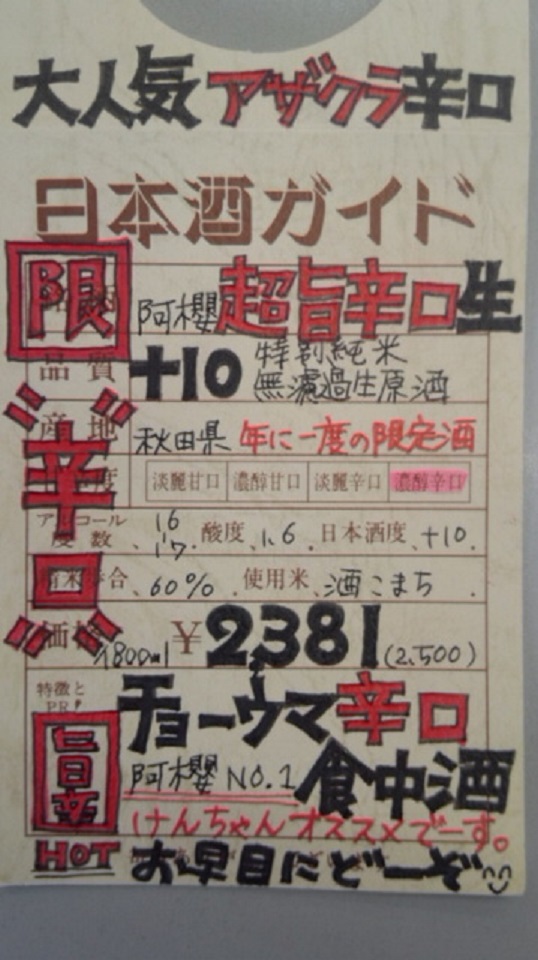 大人気アザクラ辛口
日本酒ガイド
限
阿櫻超旨辛口生
品質 +10 特別純米
無濾過生原酒
産地 秋田県 年に一度の限定酒
辛口
度 淡麗甘口 濃醇甘口 淡麗辛口 濃醇辛口
アルコール度数 16 17 酸度 1.6 日本酒度 +10
合 60% 使用米 酒こまち
価格 1800ml ¥2,381(2,500)
特徴とPR
チョーウマ辛口
旨
阿櫻 NO.1 食中酒
けんちゃんオススメでーす。
HOT お早目にどーぞ